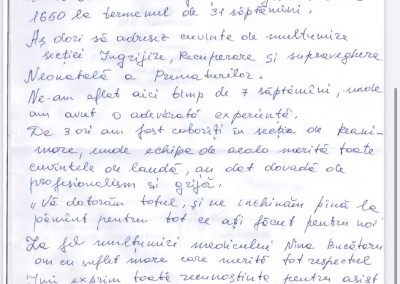 1660 la termenul de 31 săptămîni.
Aș dori să adresez cuvinte de mulțumire
secției Îngrijire, Recuperare și supraveghere
Neonatală a Prematurilor.
Ne-am aflat aici timp de 7 săptămîni, unde
am avut o adevărată experiență.
De 3 ori am fost coborîți în secția de Reani-
mare, unde echipa de acolo merită toate
cuvintele de laudă, au dat dovadă de
profesionalism și grijă.
"Vă datorăm totul, și ne închinăm pînă la
pămînt pentru tot ce ați făcut pentru noi"
La fel mulțumiri medicului Nina Bucătaru
om cu suflet mare care merită tot respectul
Îmi exprim toată recunoștința pentru asist